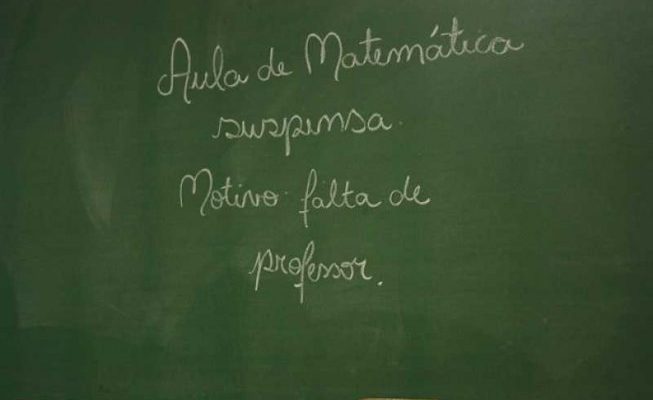 Aula de Matemática
suspensa.
Motivo: falta de
professor.